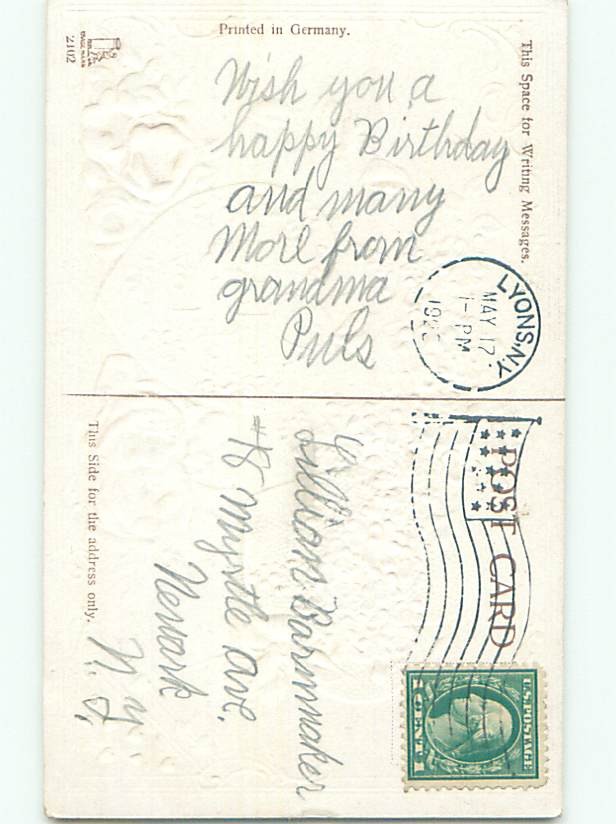 Printed in Germany.
This Space for Writing Messages.
Wish you a
happy Birthday
and many
More from
grandma
Puls
LYONS, N.Y.
MAY 17
1-PM
POST CARD
U.S. POSTAGE
1 CENT 1
Lillian
#8 Myrtle Ave,
Newark
N. Y.
This Side for the address only.
2102